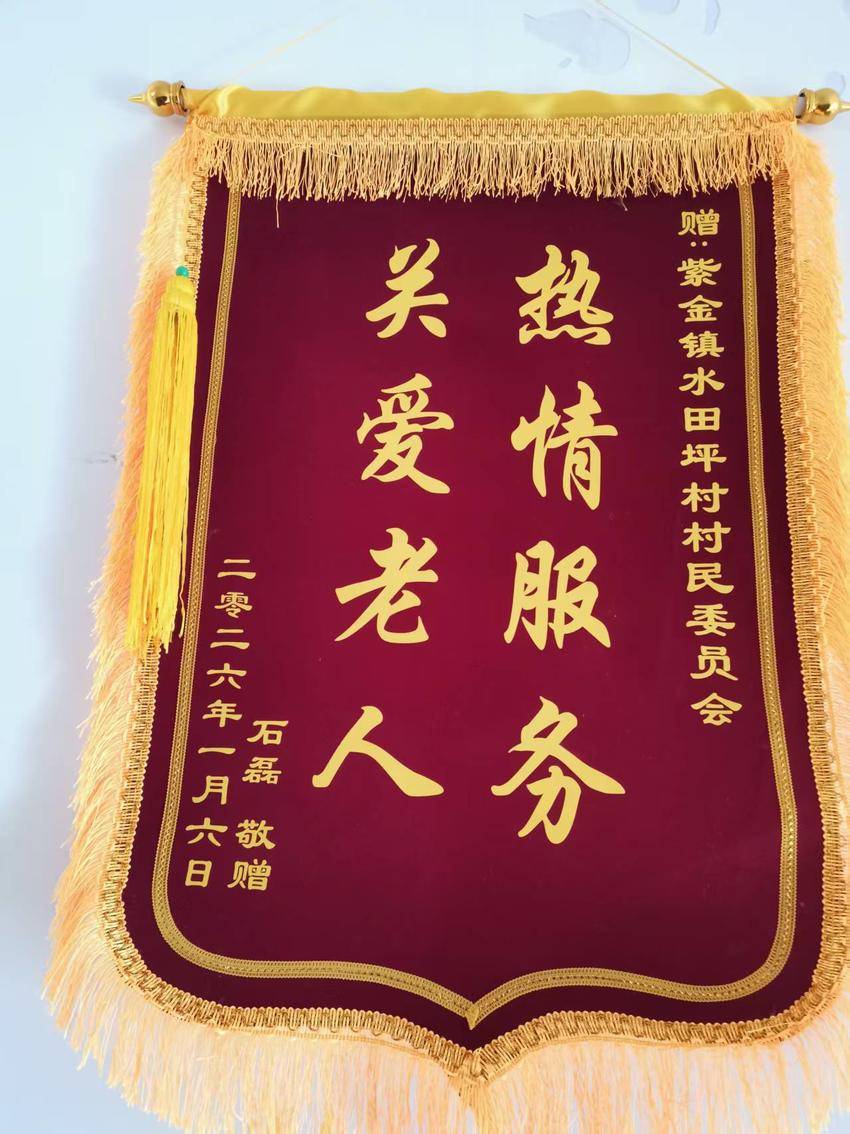 赠:紫金镇水田坪村村民委员会
热情服务
关爱老人
石磊 敬赠
二零二六年一月六日